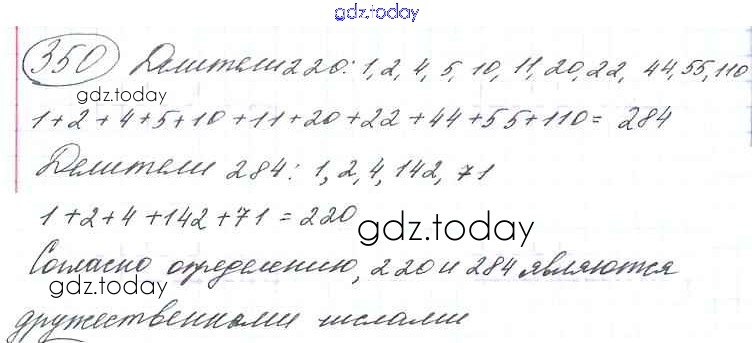 gdz.today
350 Делители 220: 1, 2, 4, 5, 10, 11, 20, 22, 44, 55, 110
gdz.today
1+2+4+5+10+11+20+22+44+55+110= 284
Делители 284: 1, 2, 4, 142, 71
1+2+4+142+71=220
gdz.today
Согласно определению, 220 и 284 являются
gdz.today
дружественными числами